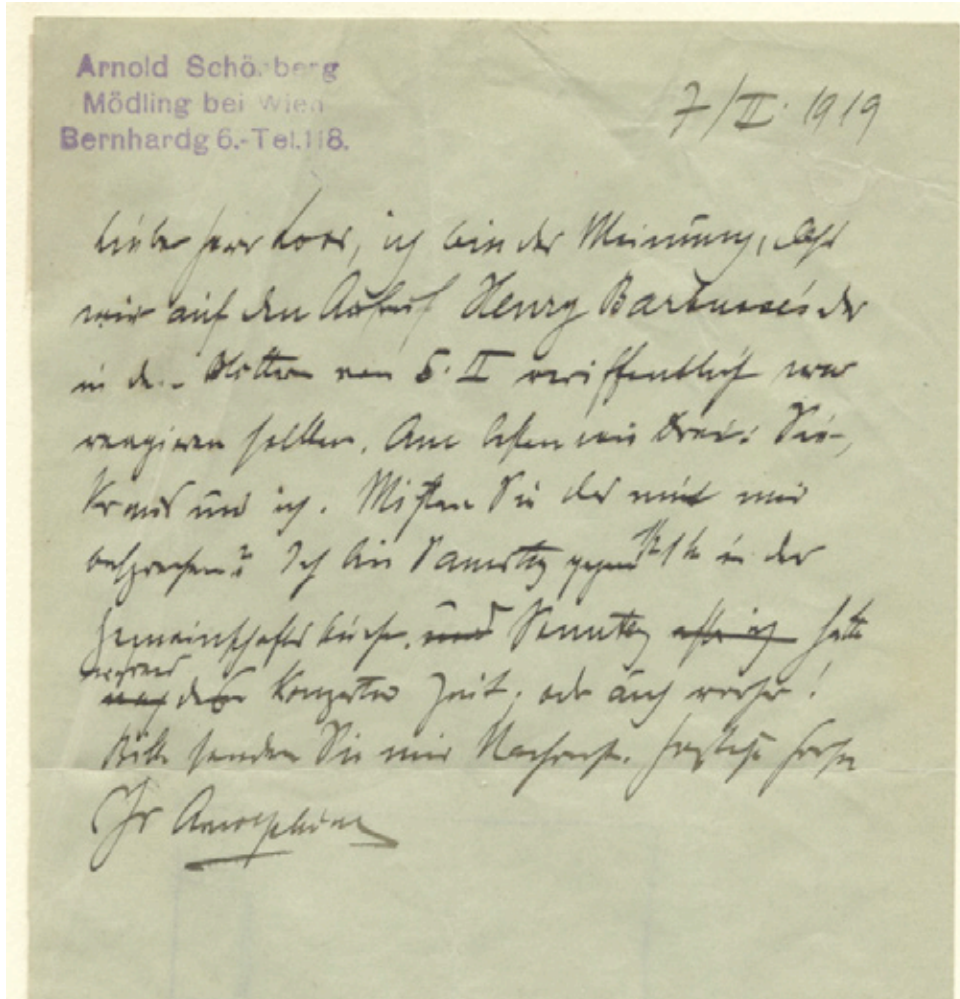 Arnold Schönberg
Mödling bei Wien
Bernhardg 6.-Tel.118.
7/II. 1919
Lieber Herr Loos, ich bin der Meinung, daß
wir auf den Aufruf Henry Barbusse's der
in den Blättern vom 6. II veröffentlicht war
reagieren sollten. Am besten wir Drei: Sie,
Kraus und ich. Möchten Sie das mit mir
besprechen? Ich bin Samstag gegen 1/2 1 h in der
Gemeinschaftsküche. und Sonntag hätte
während nach dem Konzertes Zeit, oder auch vorher!
Bitte senden Sie mir Nachricht. Herzlichst
Ihr Arnold Schönberg